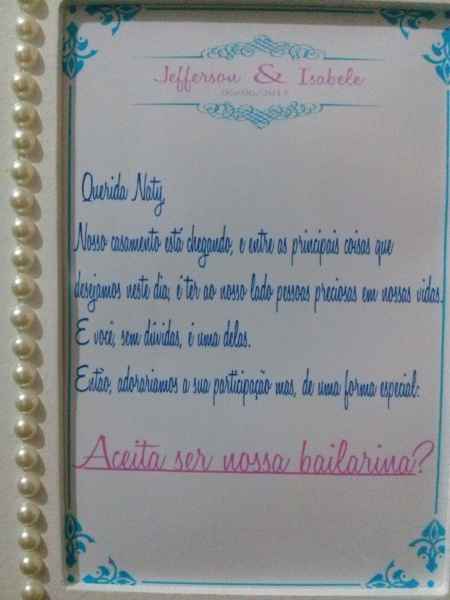 Jefferson & Isabele
Querida Naty,
Nosso casamento está chegando, e entre as principais coisas que
desejamos neste dia, é ter ao nosso lado pessoas preciosas em nossas vidas.
E você, sem dúvidas, é uma delas.
Então, adorariamos a sua participação mas, de uma forma especial:
Aceita ser nossa bailarina?